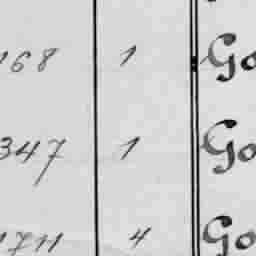 168 1 Go
347 1 Go
1711 4 Go